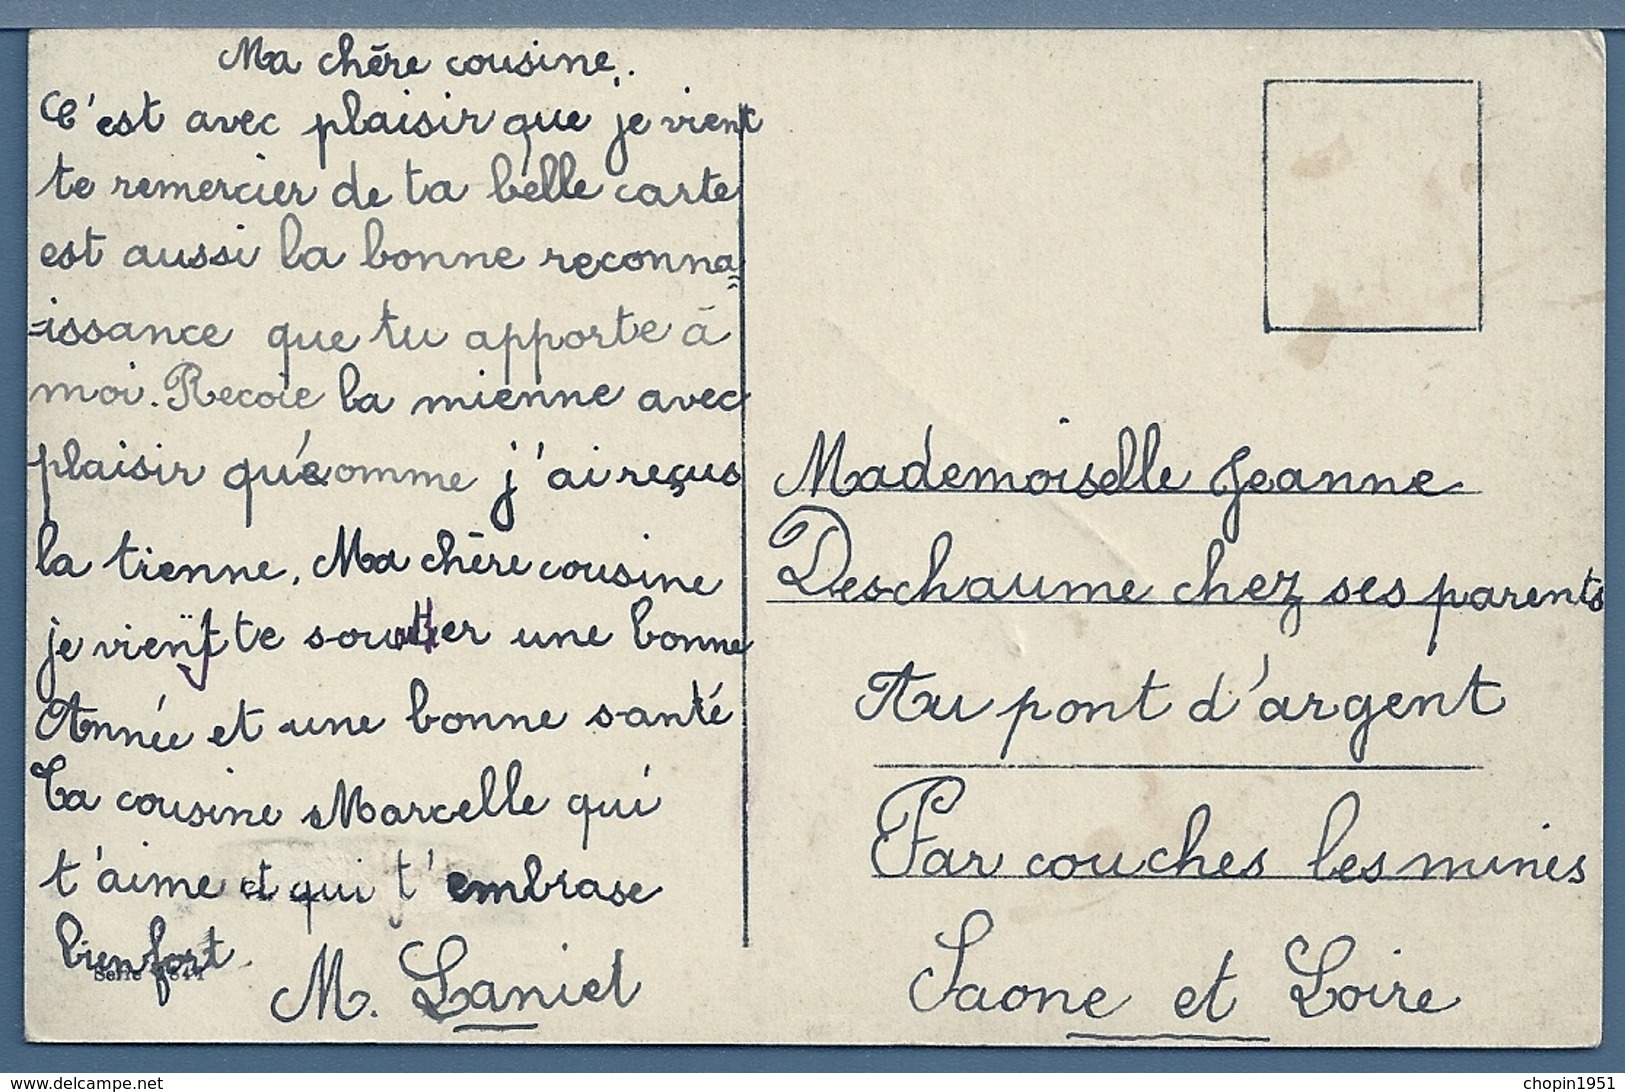 Ma chère cousine.
C'est avec plaisir que je vient
te remercier de ta belle carte
est aussi la bonne reconna
-issance que tu apporte à
moi. Recoie la mienne avec
plaisir qu'comme j'ai reçus
la tienne. Ma chère cousine
je vient te souaiter une bonne
Année et une bonne santé
Ta cousine Marcelle qui
t'aime et qui t'embrase
bien fort.
M. Laniel
Serie
Mademoiselle Jeanne
Deschaume chez ses parents
Au pont d'argent
Par couches les mines
Saone et Loire
chopin1951